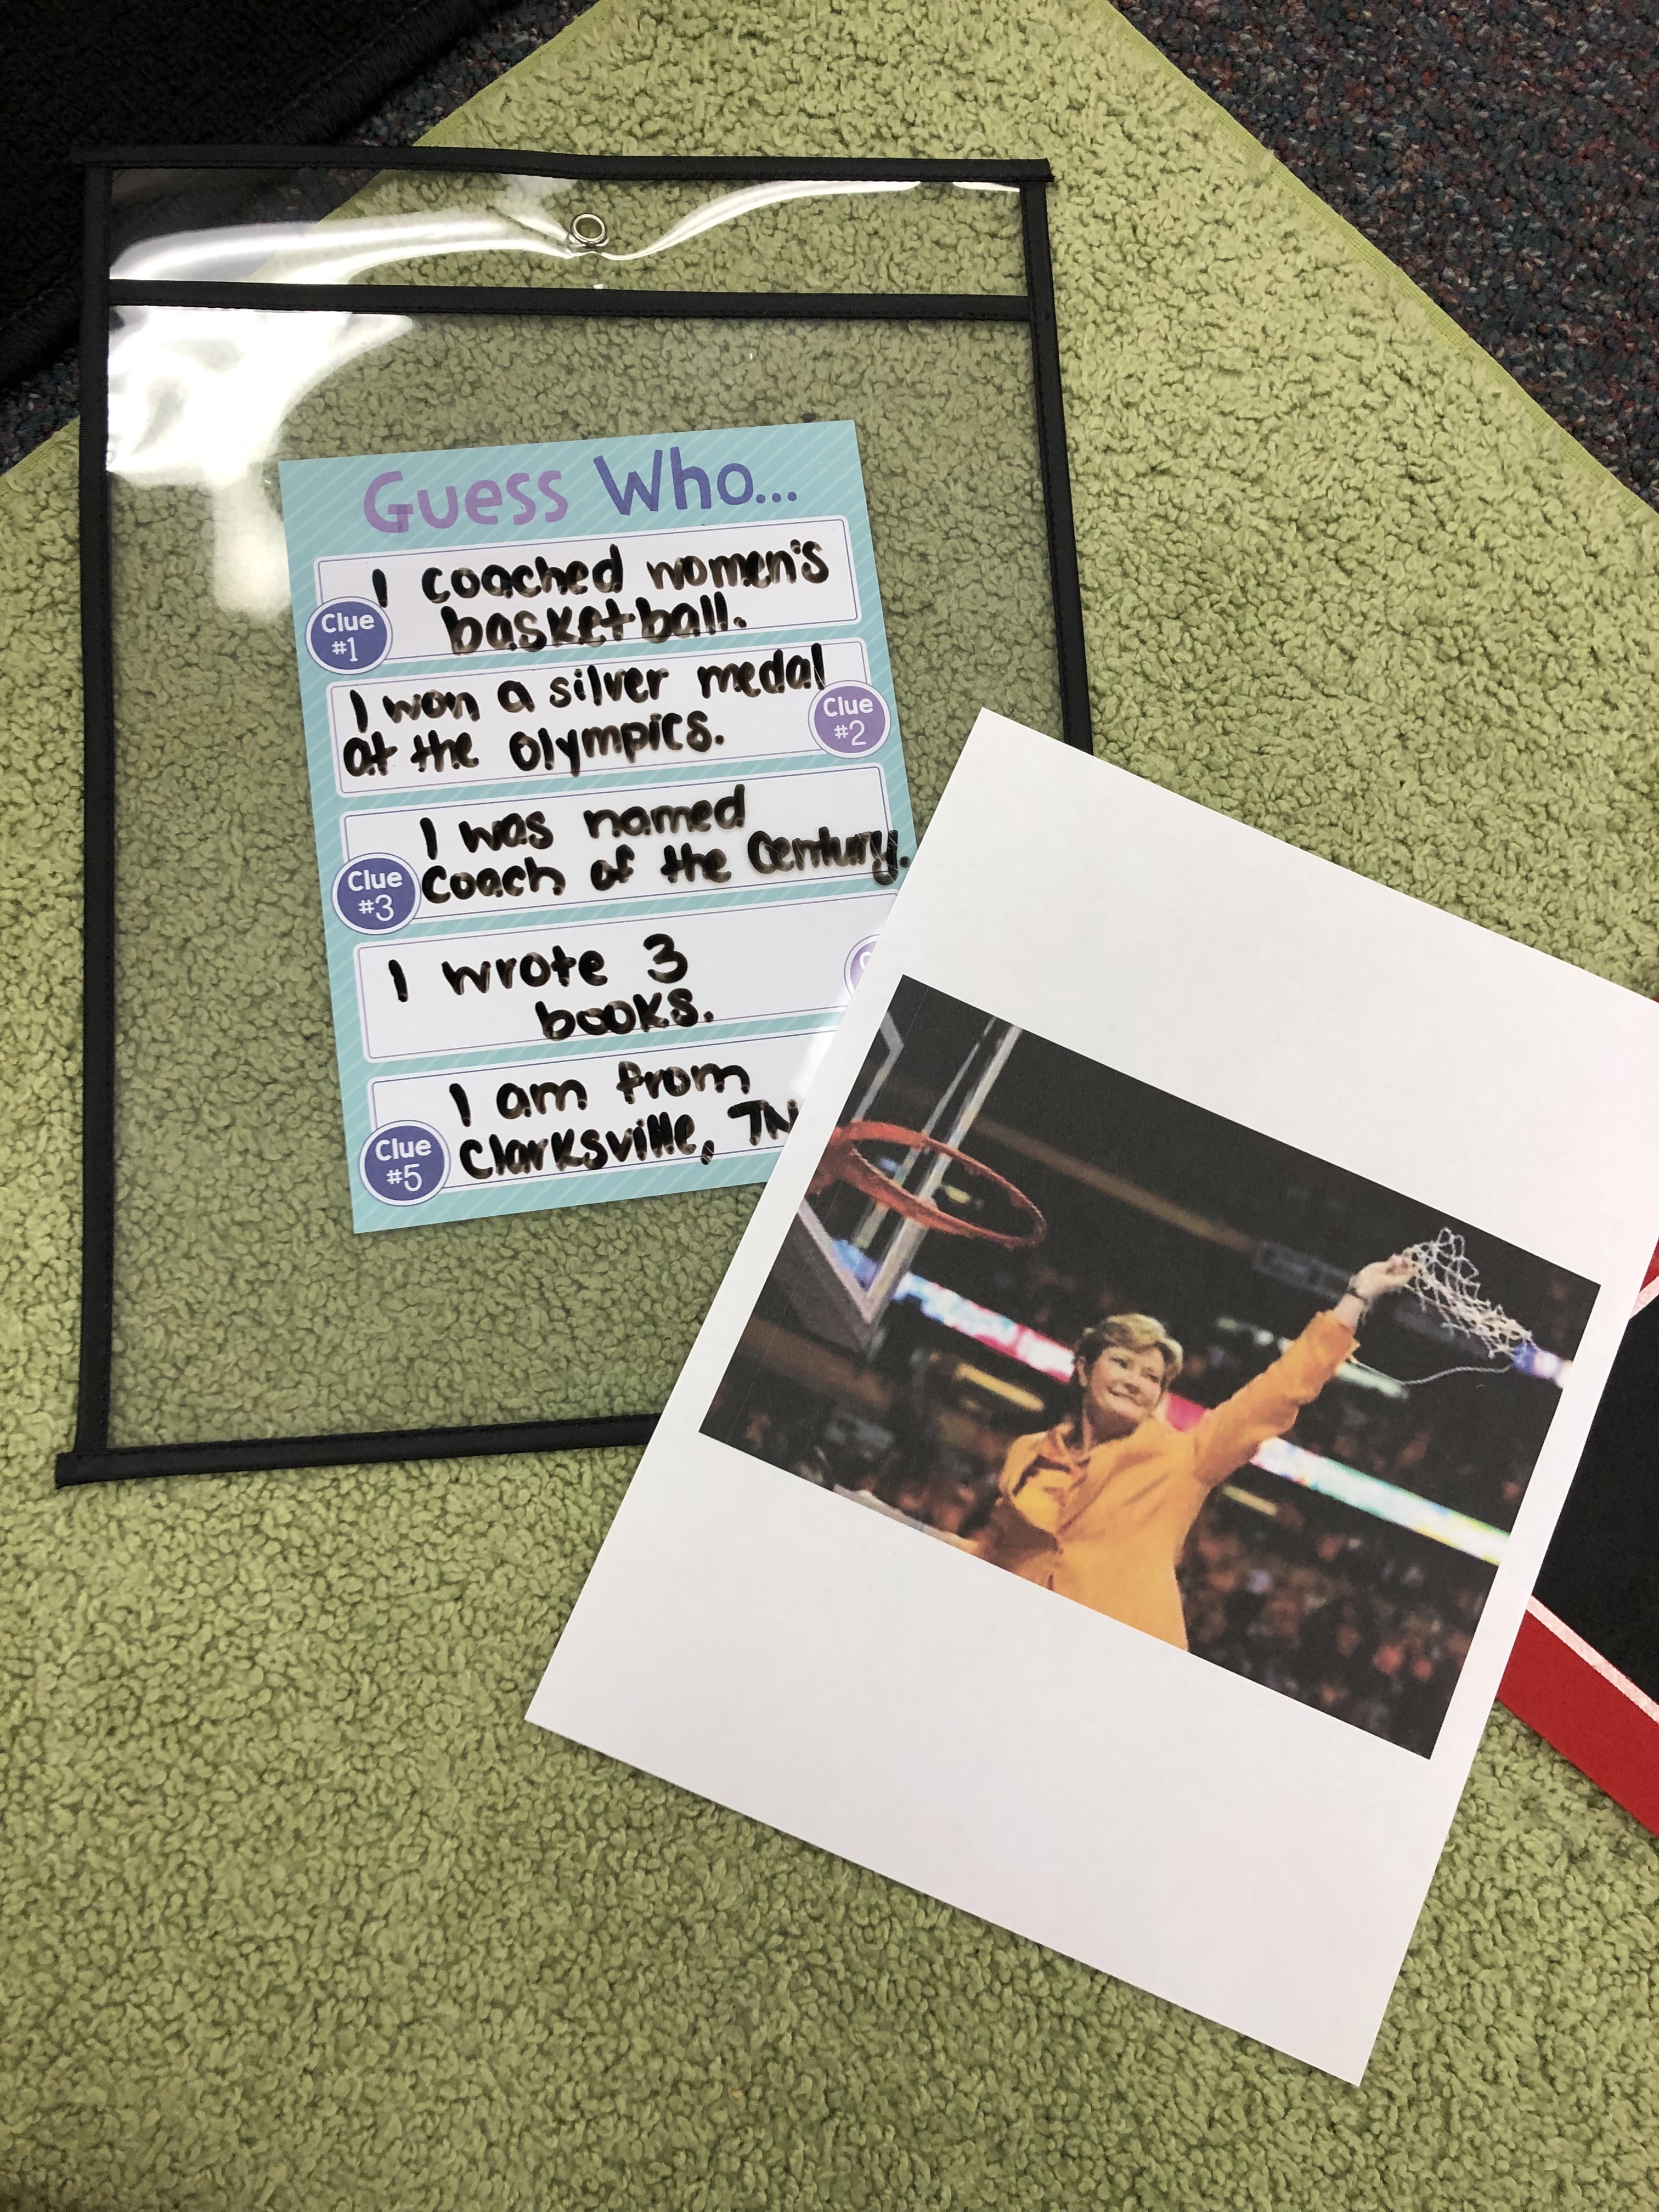 Guess Who...
I coached women's
basketball.
Clue
#1
I won a silver medal
at the Olympics.
Clue
#2
I was named
Coach of the Century.
Clue
#3
I wrote 3
books.
I am from
Clarksville, TN
Clue
#5